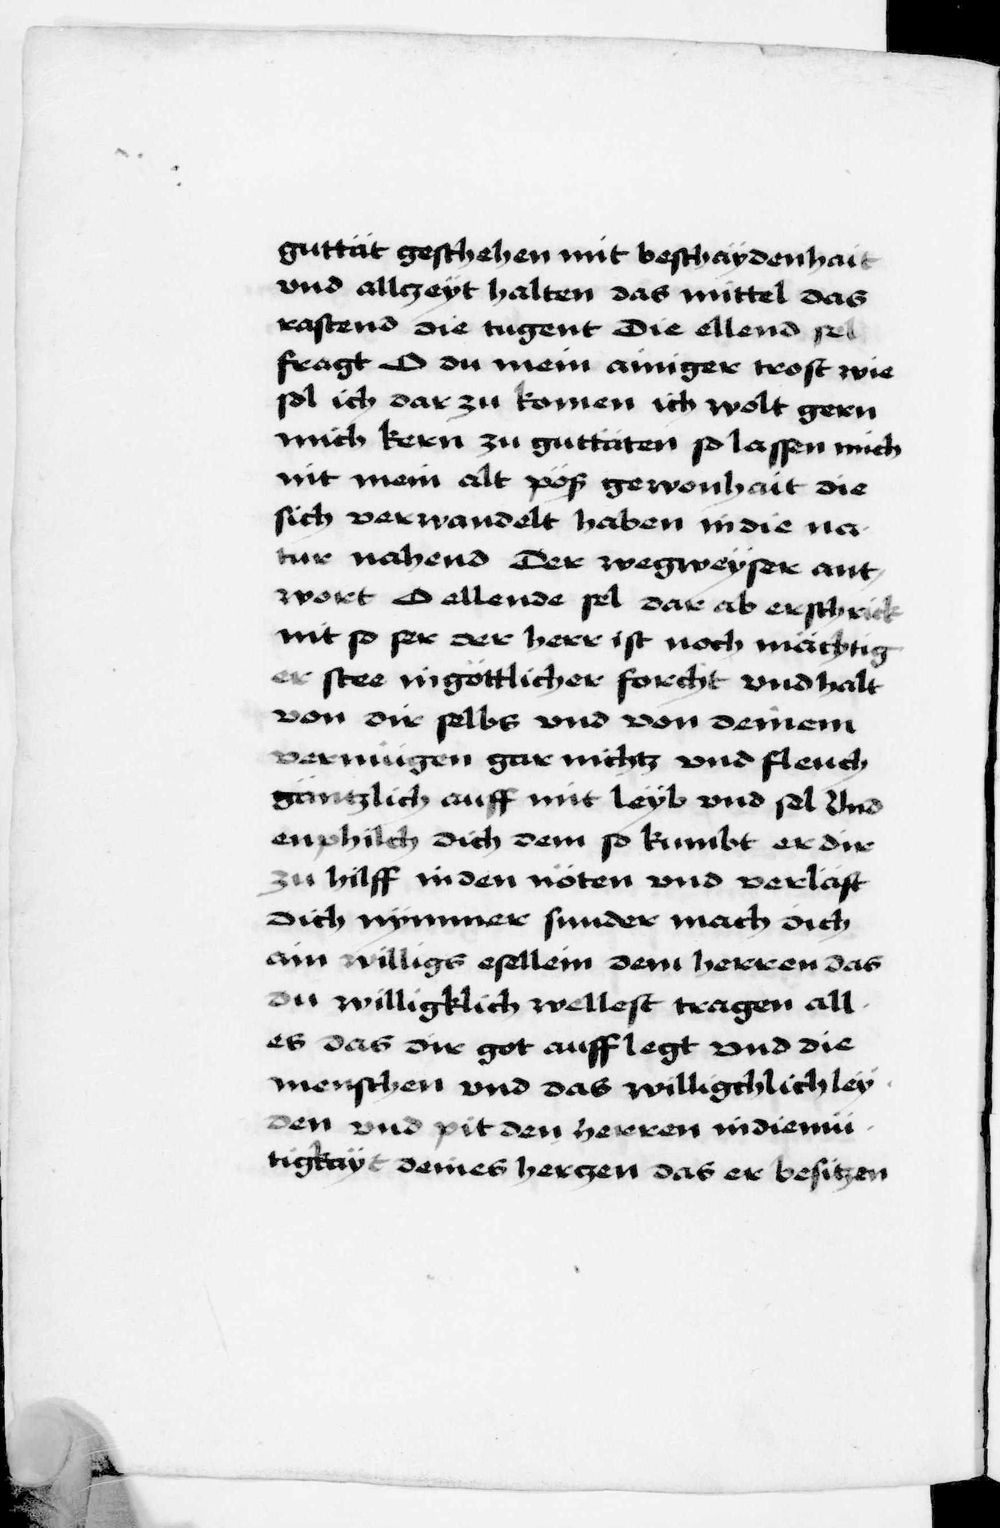 guttät geschehen mit beschäydenhait
vnd allczeyt halten das mittel das
rastend die tugent Die ellend sel
fragt O du mein ainiger trost wie
sol ich dar zu komen ich wolt gern
mich kern zu guttäten so lassen mich
nit mein alt pöß gewonhait die
sich verwandelt haben in die na-
tur nahend Der wegweyser ant-
wort O ellende sel dar ab erschrick
nit so ser der herr ist noch mächtig
er stee in göttlicher forcht vnd halt
von dir selbs vnd von deinem
vermügen gar nichtz vnd fleuch
gäntzlich auff mit leyb vnd sel Vnd
enphilch dich dem so kumbt er dir
zu hilff in den nöten vnd verläst
dich nymmer sunder mach dich
ain willigs esellein dem herren das
du willigklich wellest tragen all-
es das dir got auff legt vnd die
menschen vnd das willigchlich ley-
den vnd pit den herren in diemü-
tigkayt deines herczen das er besitzen